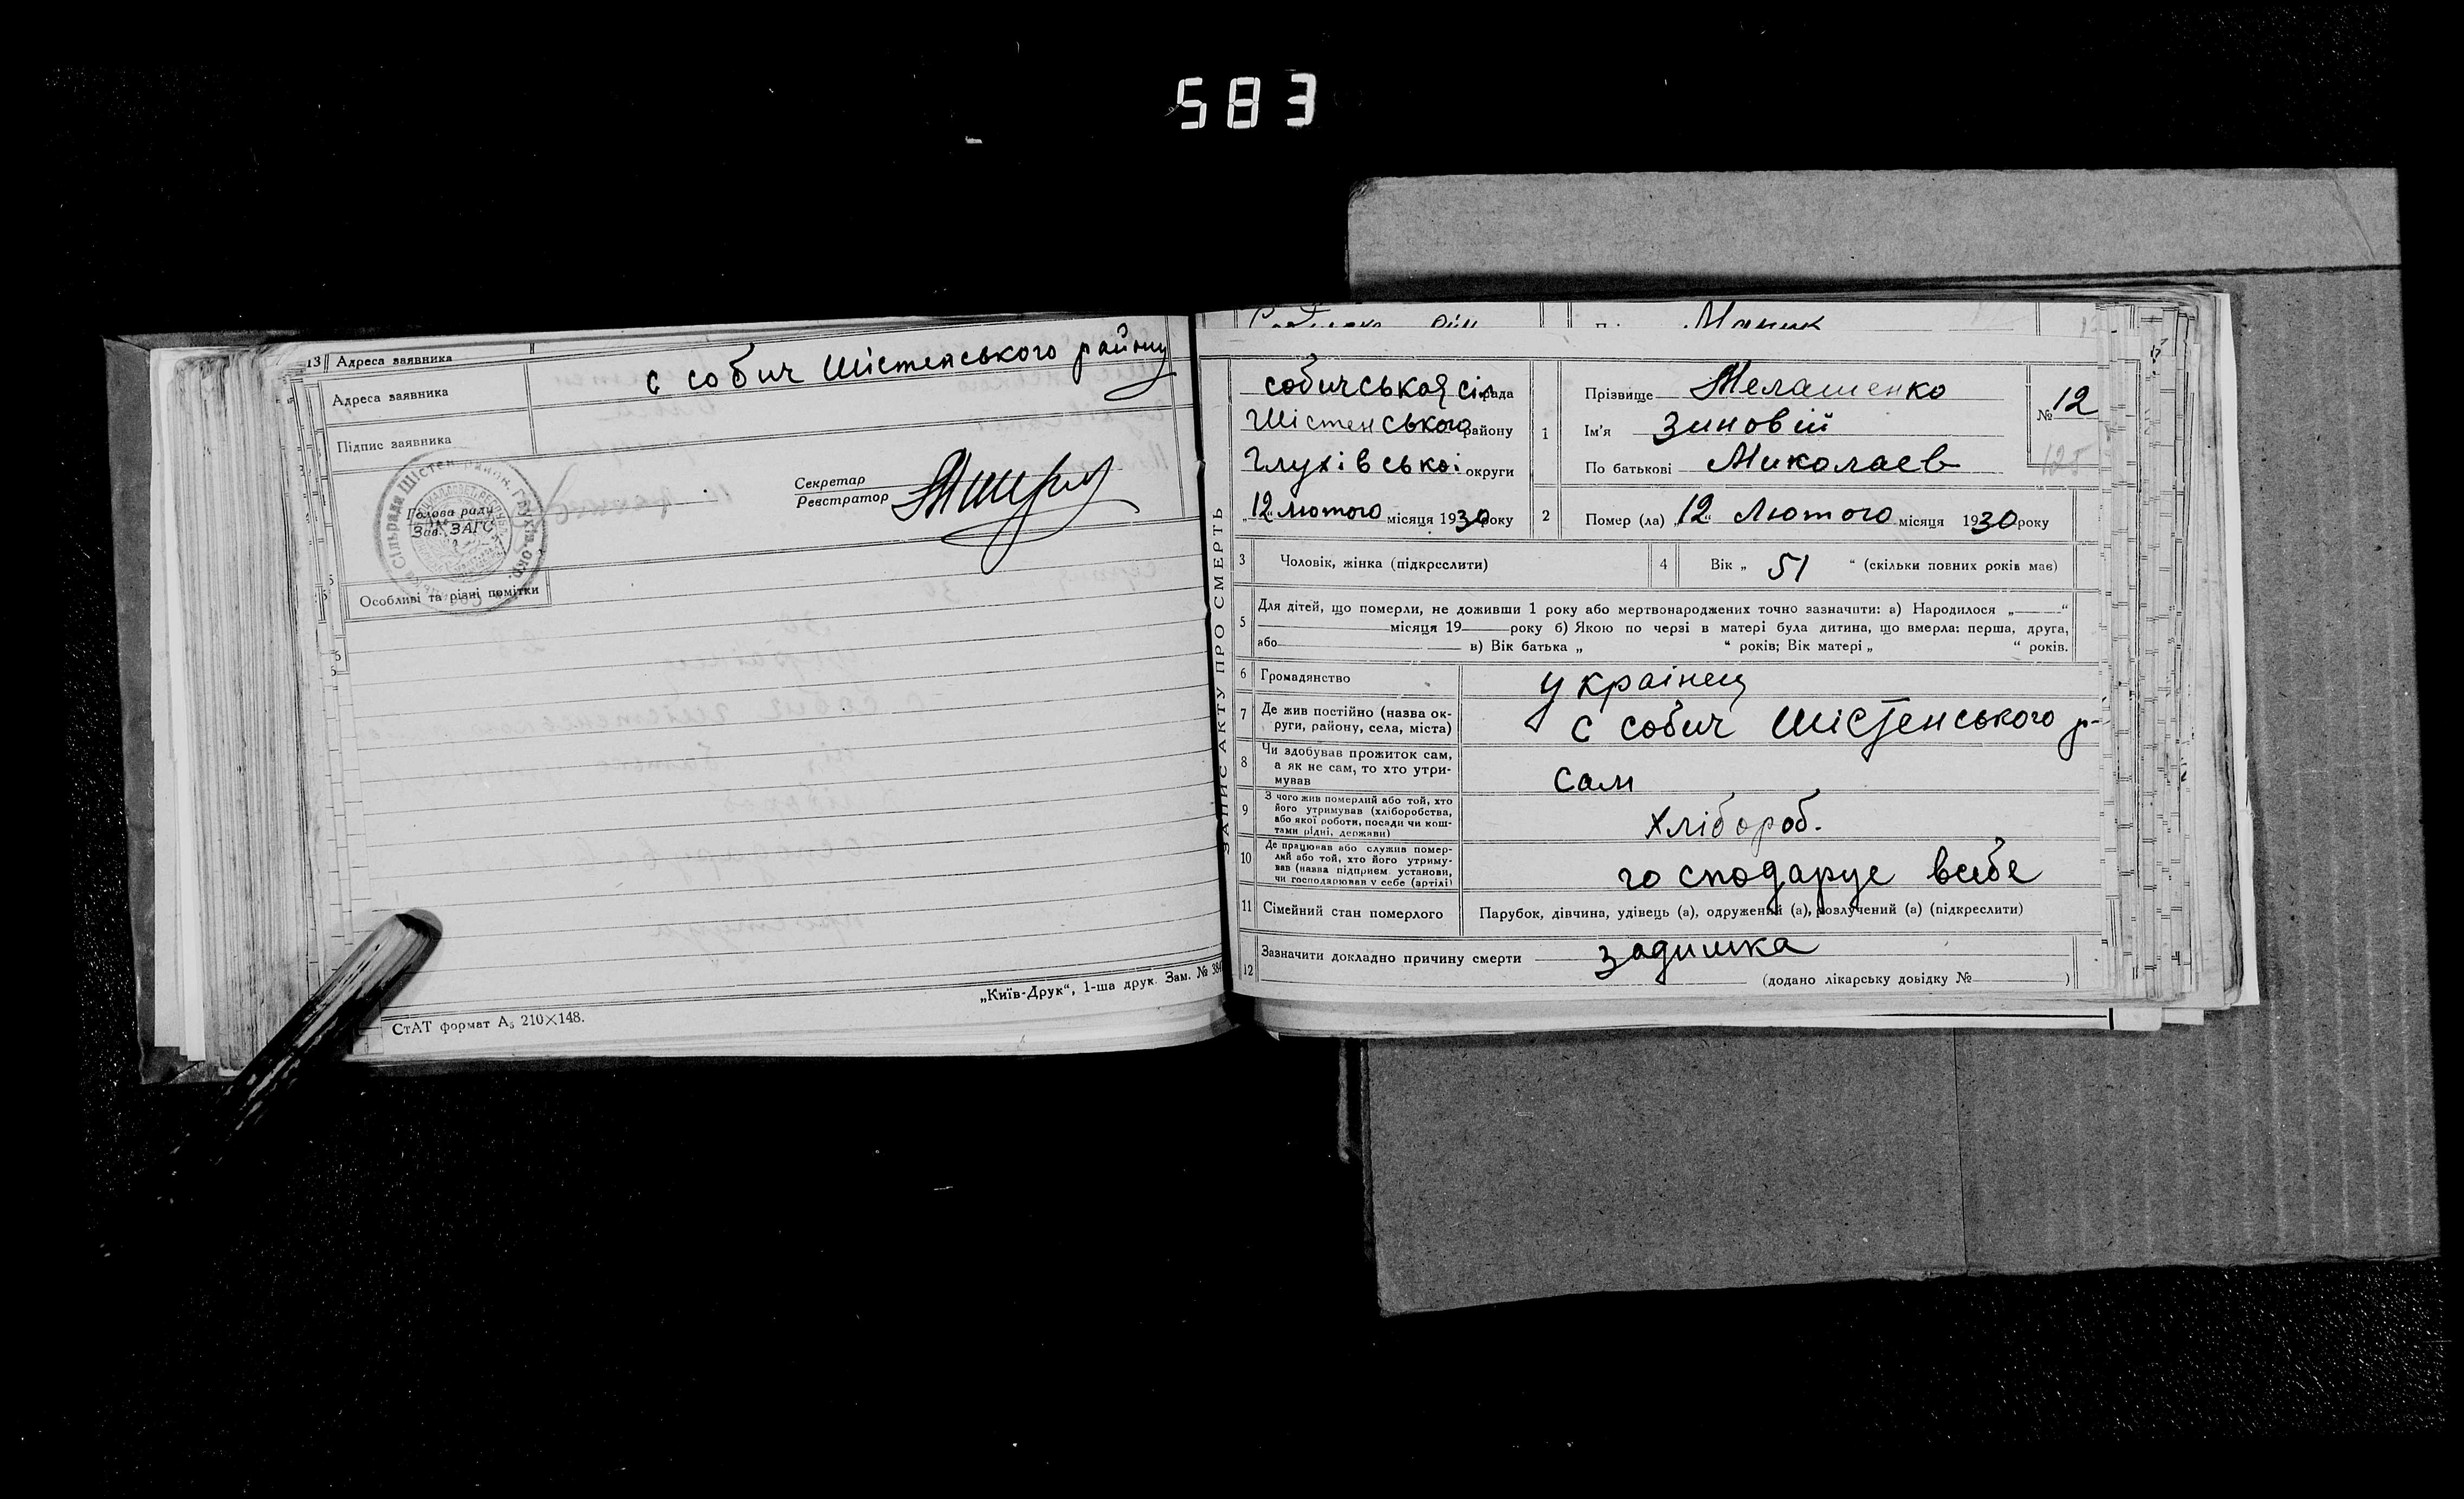 583
13 Адреса заявника
Адреса заявника с собич Шістенського району
Підпис заявника
Голова ради
Зав. ЗАГС
Секретар
Реєстратор
Особливі та різні помітки
„Київ-Друк“, 1-ша друк. Зам. №
СтАТ формат А5 210×148.
ЗАПИС АКТУ ПРО СМЕРТЬ
собичськая сільрада
Шістенського району
Глухівської округи
„12“ лютого місяця 1930 року
1 Прізвище Мелашенко
Ім'я Зиновій
По батькові Миколаєв
№ 12
125
2 Помер (ла) „12“ Лютого місяця 1930 року
3 Чоловік, жінка (підкреслити)
4 Вік „ 51 “ (скільки повних років має)
5 Для дітей, що померли, не доживши 1 року або мертвонароджених точно зазначити: а) Народилося „ “
місяця 19 року б) Якою по черзі в матері була дитина, що вмерла: перша, друга,
або в) Вік батька „ “ років; Вік матері „ “ років.
6 Громадянство українец
7 Де жив постійно (назва ок-
руги, району, села, міста) с собич Шістенського р-
8 Чи здобував прожиток сам,
а як не сам, то хто утри-
мував сам
9 З чого жив померлий або той, хто
його утримував (хліборобства,
або якої роботи, посади чи кош-
тами рідні, держави) хлібороб.
10 Де працював або служив помер-
лий або той, хто його утриму-
вав (назва підприєм. установи,
чи господарював у себе (артілі) господарує всебе
11 Сімейний стан померлого Парубок, дівчина, удівець (а), одружений (а), розлучений (а) (підкреслити)
12 Зазначити докладно причину смерти задишка
(додано лікарську довідку № )